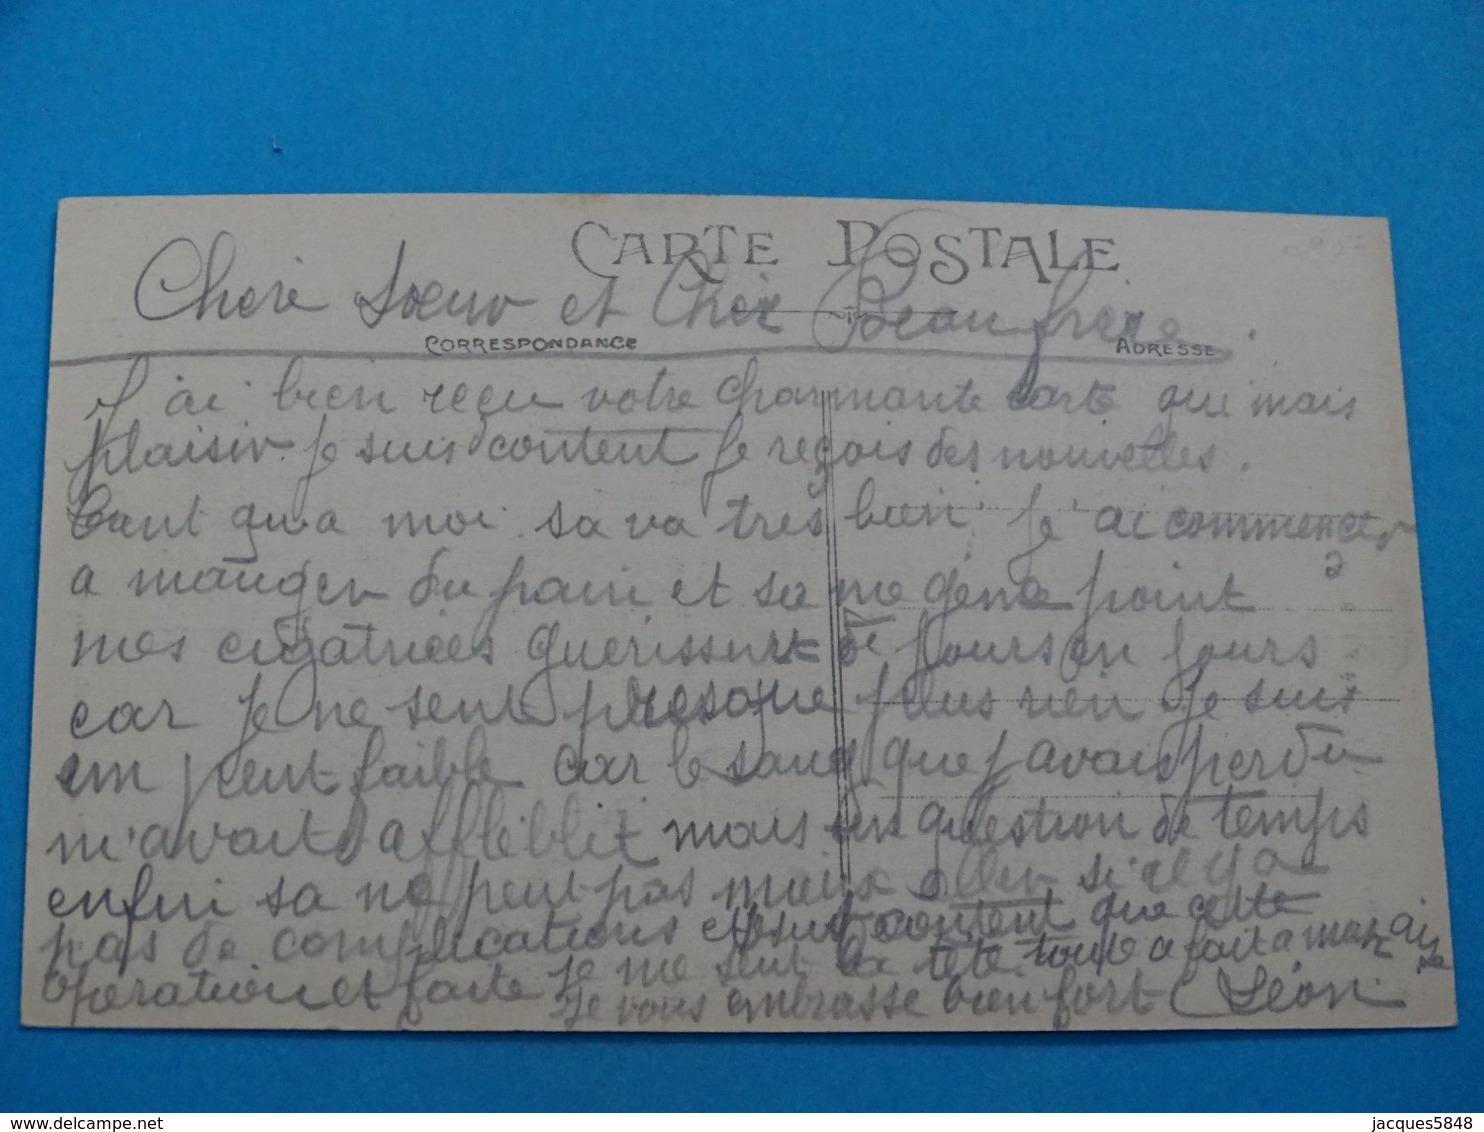 CARTE POSTALE
Chère Sœur et Cher Beau frère.
CORRESPONDANCE
ADRESSE
J'ai bien reçu votre charmante carte qui mais
plaisir. Je suis content Je reçois des nouvelles.
Tant qu'a moi sa va très bien, Je ai commencer
a manger du pain et sa me gène point
mes cigatrices guerissent de jours en jours
car Je ne sent presque plus rien Je suis
em peut faible car le sang que j'avais perdu
m'avait affléblit mais ses question de temps
enfin sa ne peut pas mieux aller si il y a
pas de complications et Je suis content que cette
opération et faite Je me sent la tête toute a fait a mon aise
Je vous embrasse bien fort Léon
jacques5848